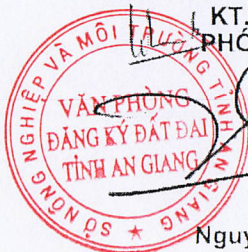 KT.
PHÓ
SỞ NÔNG NGHIỆP VÀ MÔI TRƯỜNG TỈNH AN GIANG
VĂN PHÒNG
ĐĂNG KÝ ĐẤT ĐAI
TỈNH AN GIANG
Nguy